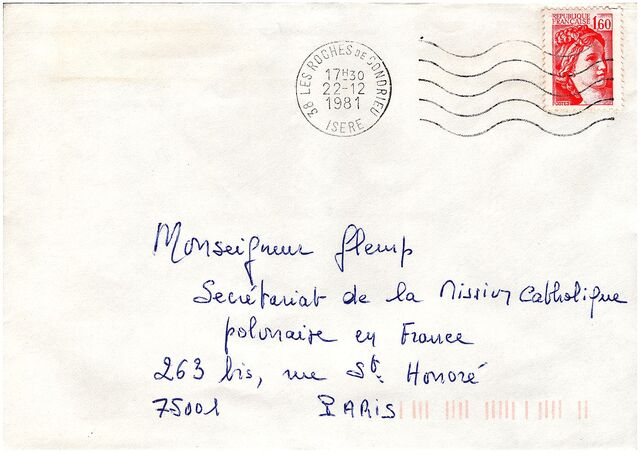 REPUBLIQUE
FRANCAISE
1,60
38 LES ROCHES DE CONDRIEU
17H30
22-12
1981
ISERE
Monseigneur Glemp
Secrétariat de la Mission Catholique
polonaise en France
263 bis, rue St. Honoré
75001 PARIS